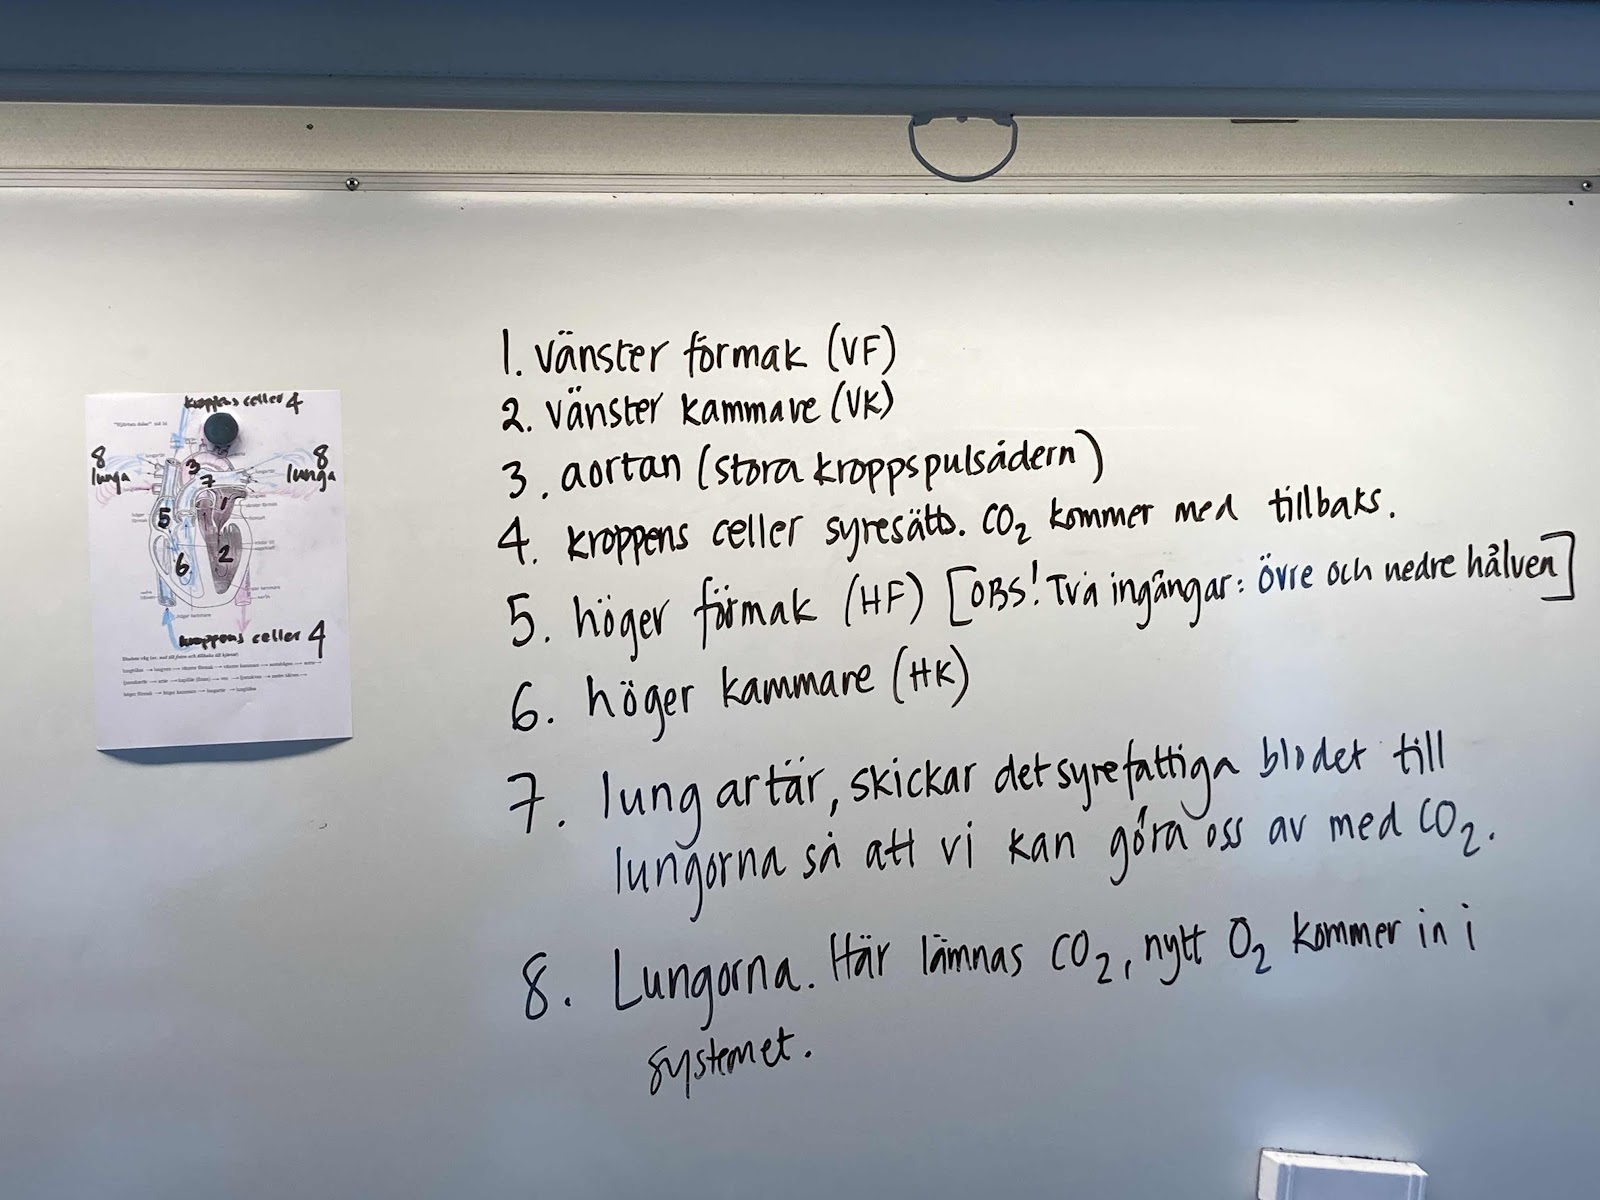 kroppens celler 4
"Hjärtats delar"
8
lunga
8
lunga
3
7
1
5
2
6
kroppens celler 4
1. vänster förmak (VF)
2. vänster kammare (VK)
3. aortan (stora kroppspulsådern)
4. kroppens celler syresätts. CO2 kommer med tillbaks.
5. höger förmak (HF) [OBS! Två ingångar: övre och nedre hålven]
6. höger kammare (HK)
7. lungartär, skickar det syrefattiga blodet till
lungorna så att vi kan göra oss av med CO2.
8. Lungorna. Här lämnas CO2, nytt O2 kommer in i
systemet.